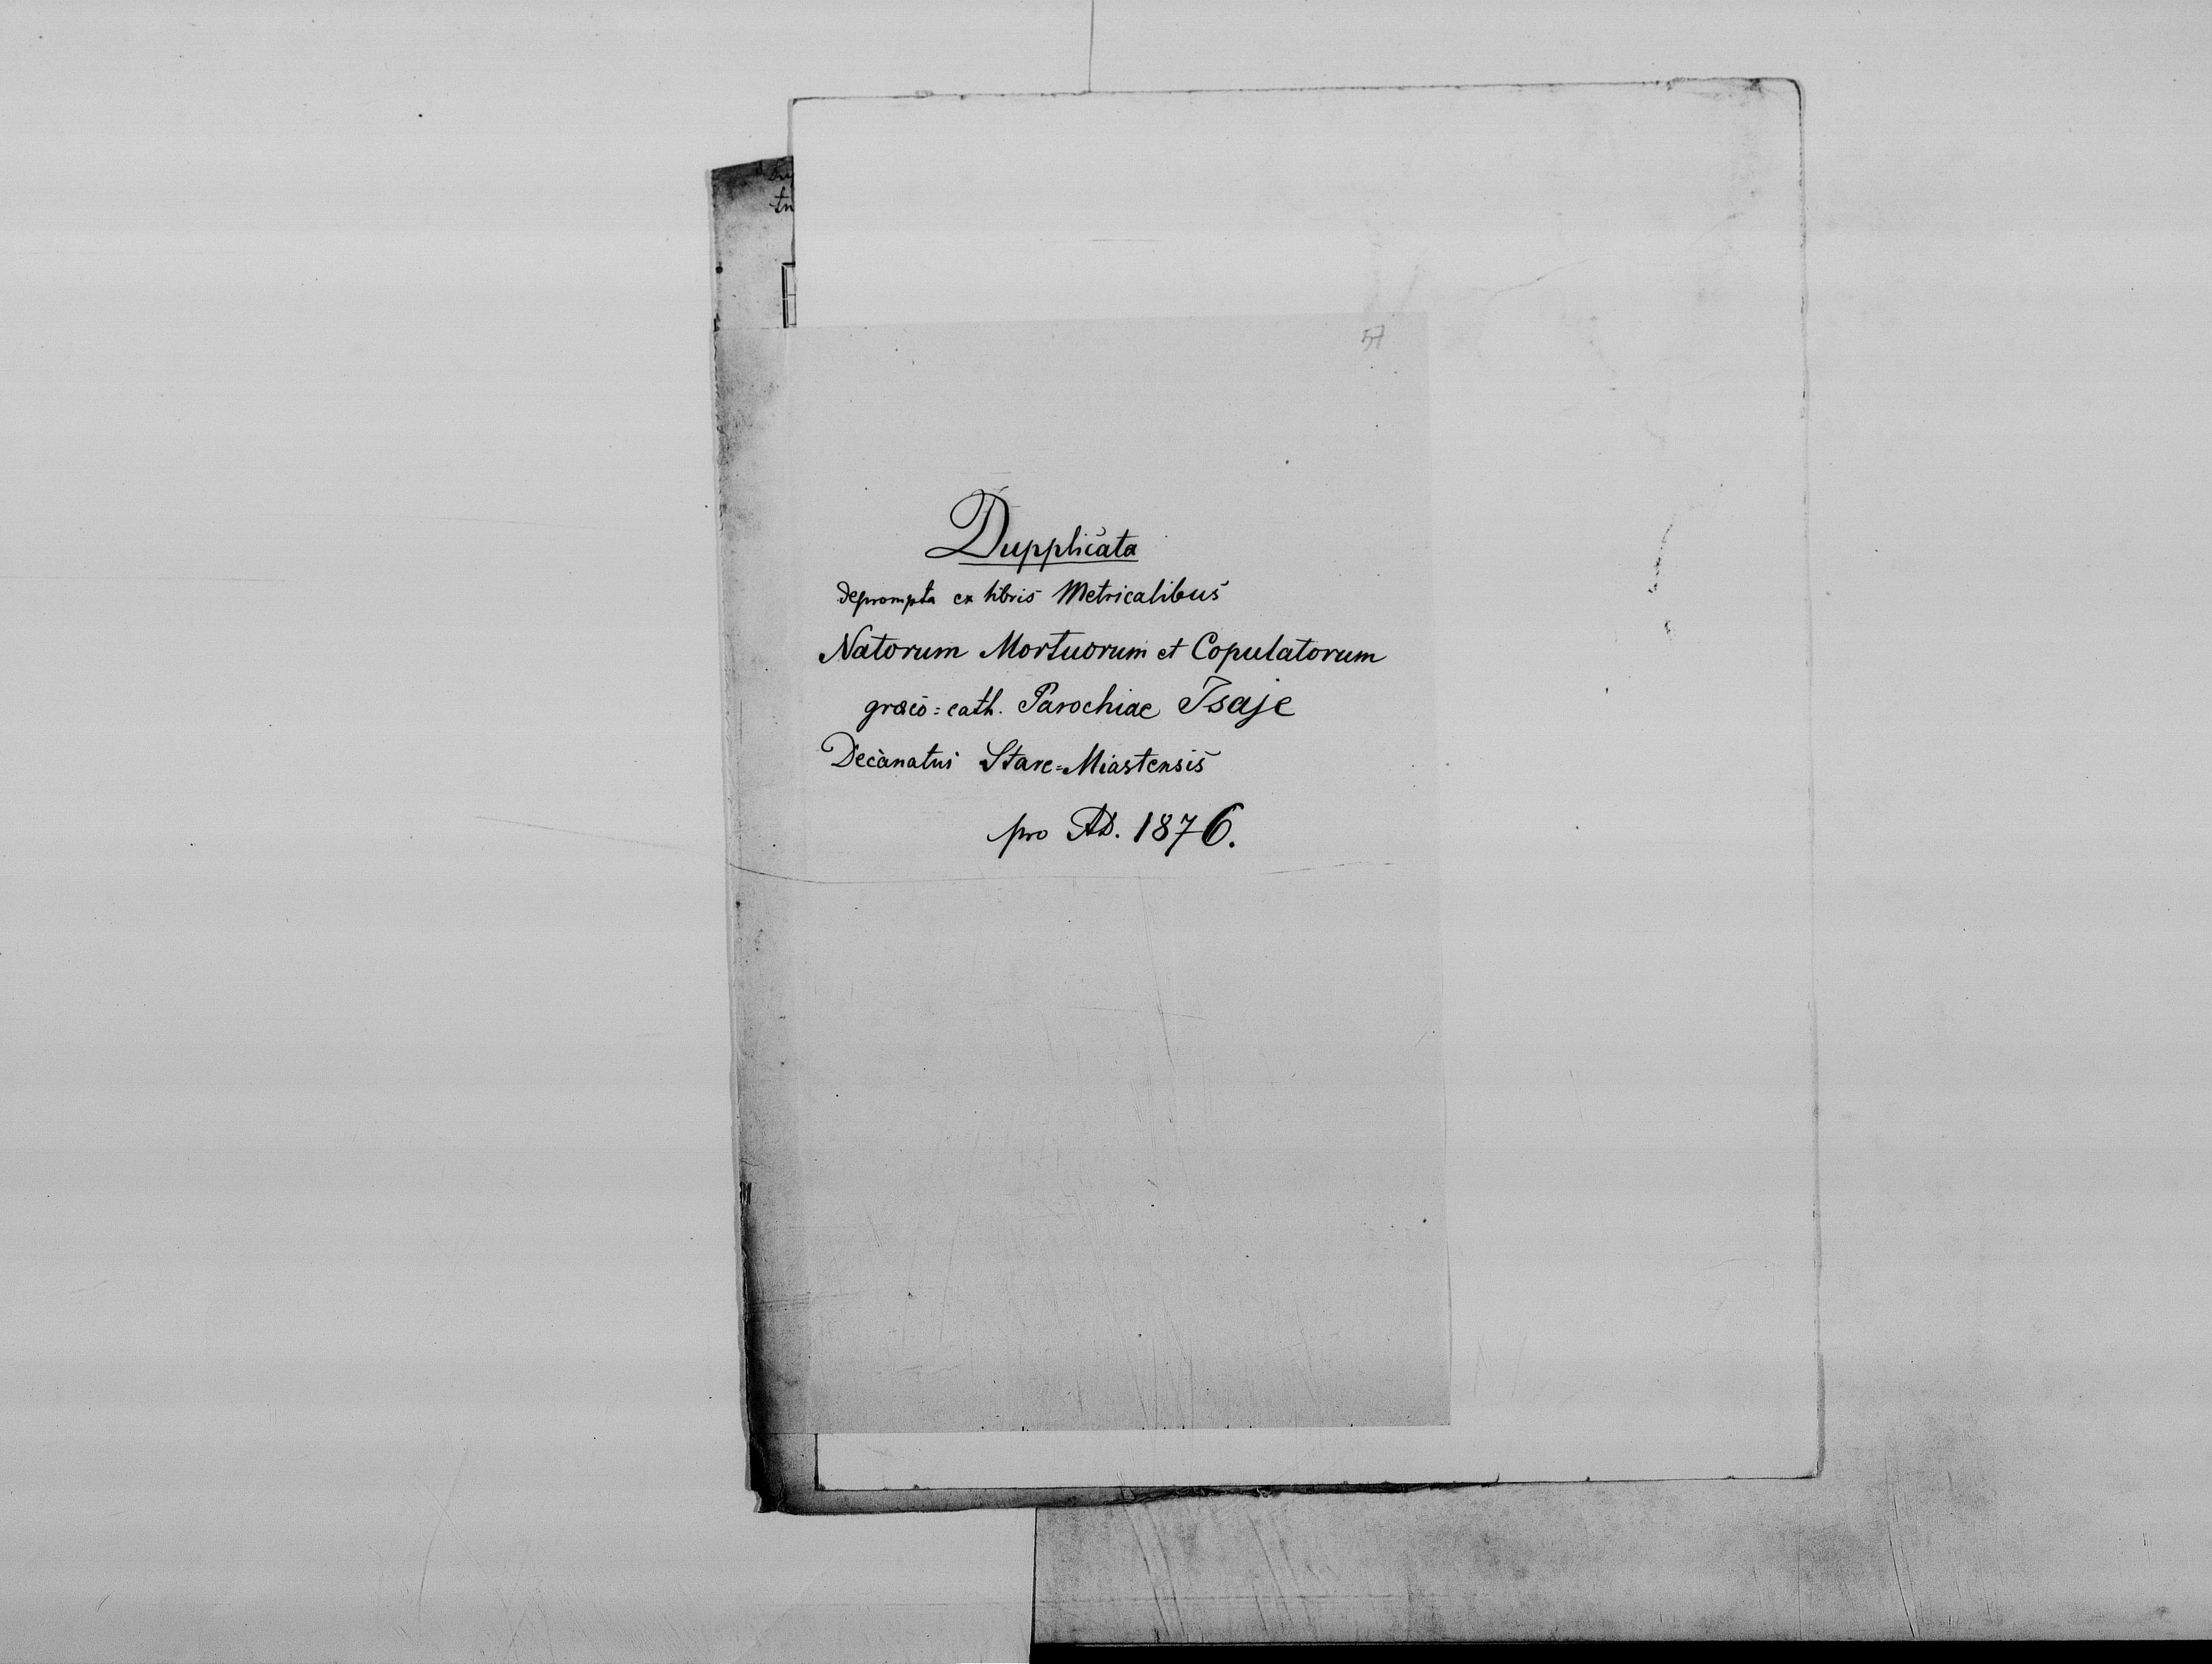 57
Dupplicata
deprompta ex libris Metricalibus
Natorum Mortuorum et Copulatorum
græco=cath. Parochiae Isaje
Decanatus Stare=Miastensis
pro AD. 1876.